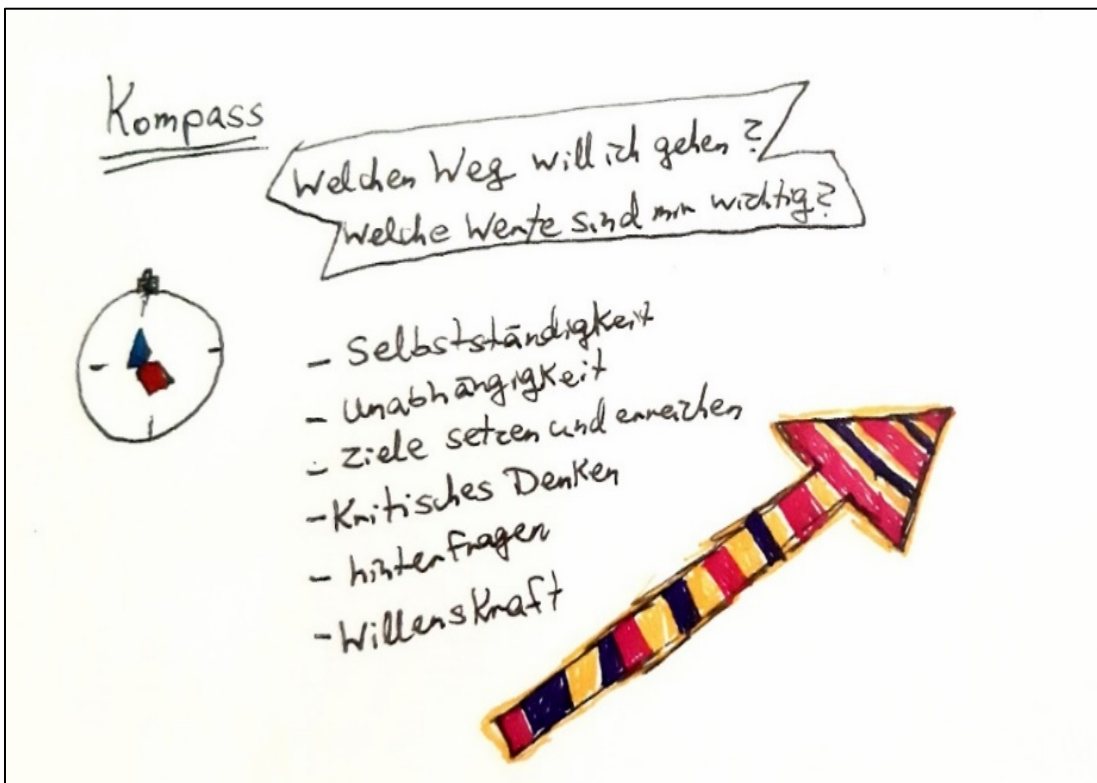 Kompass
Welchen Weg will ich gehen?
Welche Werte sind mir wichtig?
- Selbstständigkeit
- Unabhängigkeit
- Ziele setzen und erreichen
- Kritisches Denken
- hinterfragen
- Willenskraft